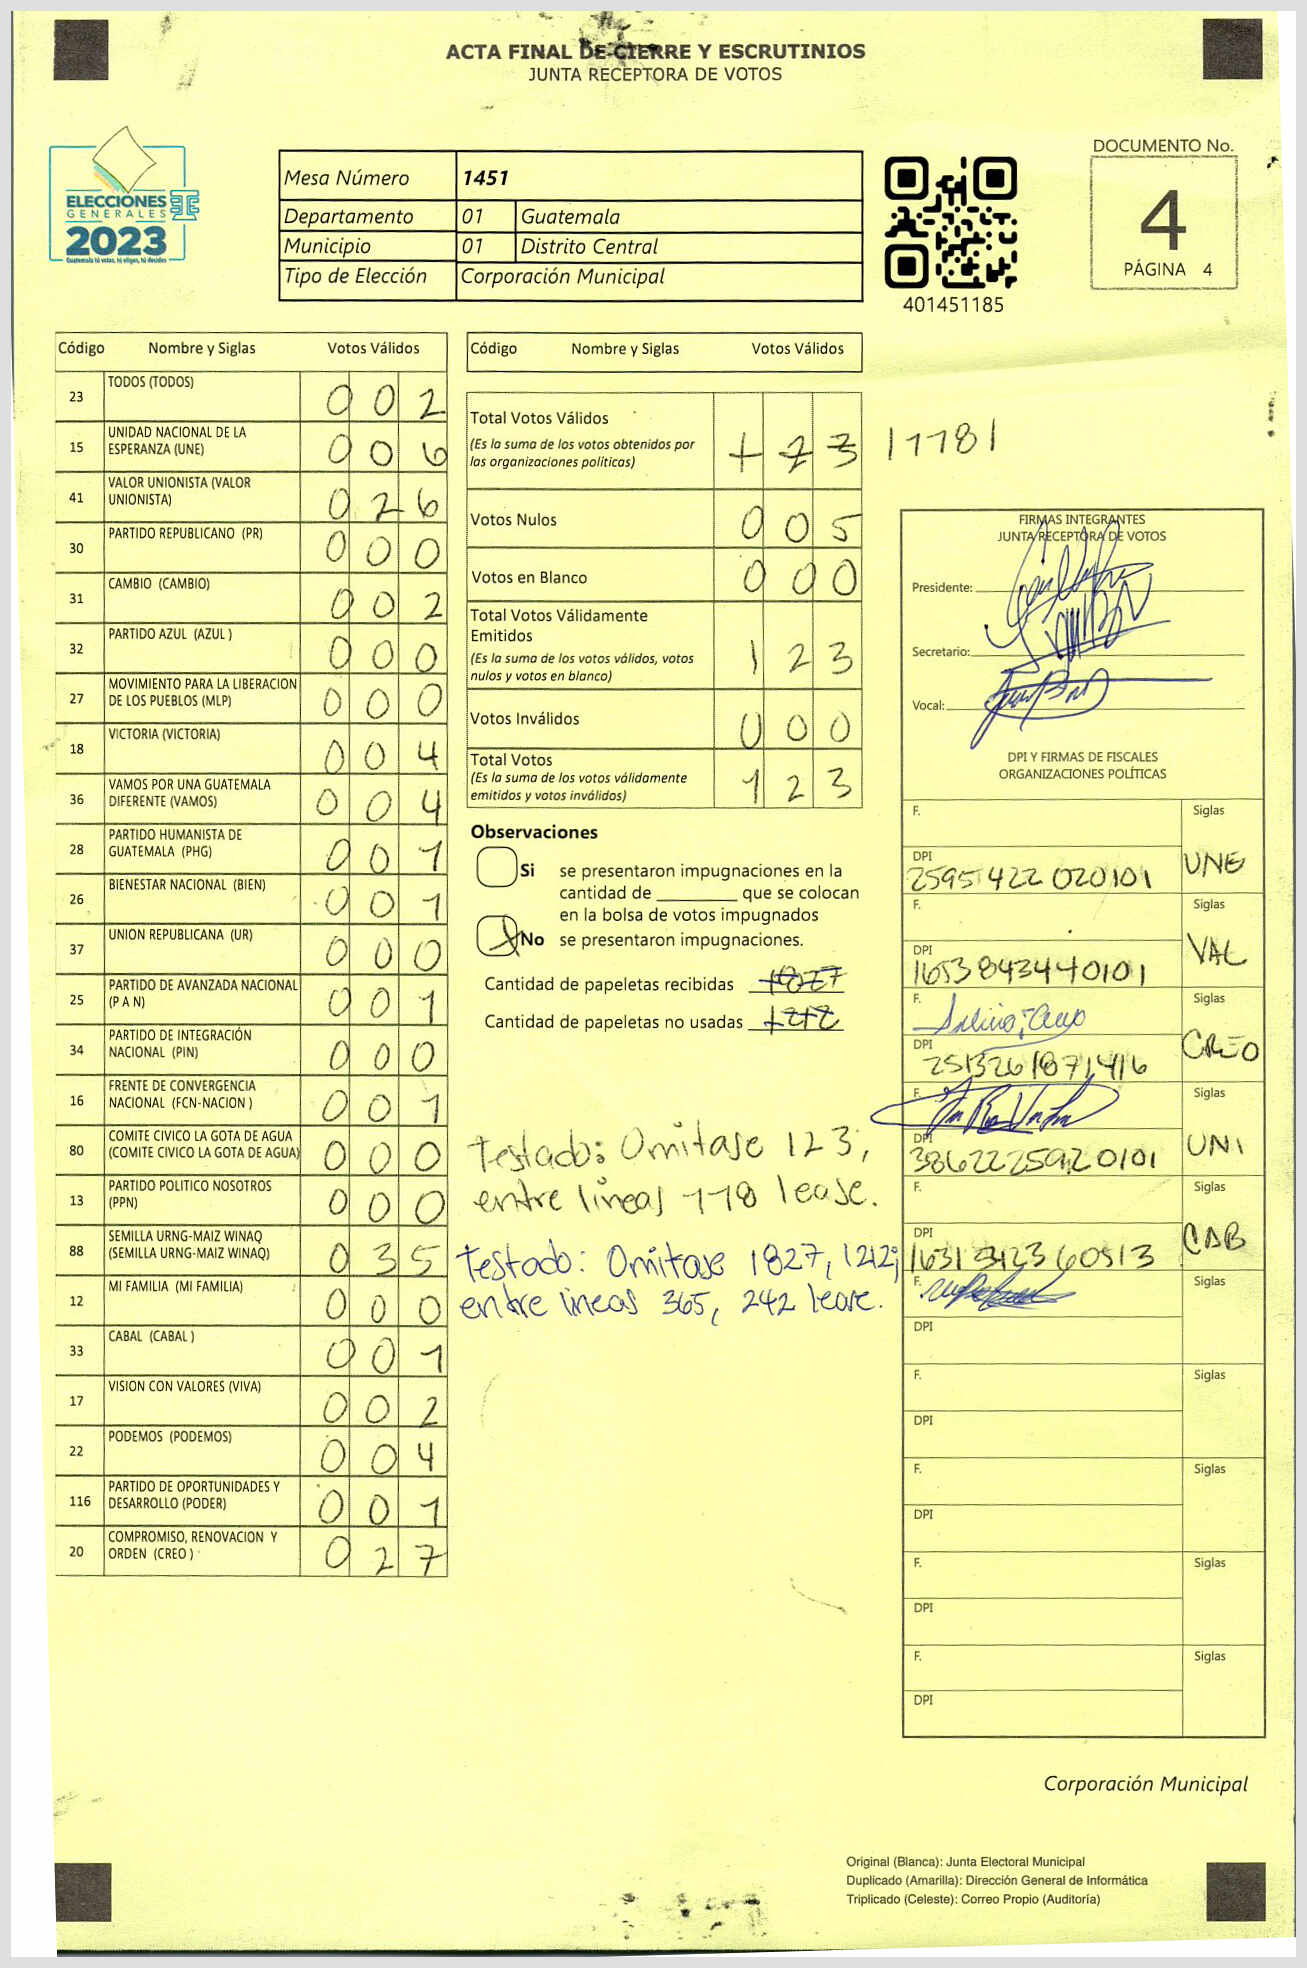 ACTA FINAL DE CIERRE Y ESCRUTINIOS
JUNTA RECEPTORA DE VOTOS
ELECCIONES
GENERALES
2023
Guatemala tú votas, tú eliges, tú decides
Mesa Número 1451
Departamento 01 Guatemala
Municipio 01 Distrito Central
Tipo de Elección Corporación Municipal
401451185
DOCUMENTO No.
4
PÁGINA 4
Código Nombre y Siglas Votos Válidos
23 TODOS (TODOS) 0 0 2
15 UNIDAD NACIONAL DE LA ESPERANZA (UNE) 0 0 6
41 VALOR UNIONISTA (VALOR UNIONISTA) 0 2 6
30 PARTIDO REPUBLICANO (PR) 0 0 0
31 CAMBIO (CAMBIO) 0 0 2
32 PARTIDO AZUL (AZUL ) 0 0 0
27 MOVIMIENTO PARA LA LIBERACION DE LOS PUEBLOS (MLP) 0 0 0
18 VICTORIA (VICTORIA) 0 0 4
36 VAMOS POR UNA GUATEMALA DIFERENTE (VAMOS) 0 0 4
28 PARTIDO HUMANISTA DE GUATEMALA (PHG) 0 0 1
26 BIENESTAR NACIONAL (BIEN) 0 0 1
37 UNION REPUBLICANA (UR) 0 0 0
25 PARTIDO DE AVANZADA NACIONAL (P A N) 0 0 1
34 PARTIDO DE INTEGRACIÓN NACIONAL (PIN) 0 0 0
16 FRENTE DE CONVERGENCIA NACIONAL (FCN-NACION ) 0 0 1
80 COMITE CIVICO LA GOTA DE AGUA (COMITE CIVICO LA GOTA DE AGUA) 0 0 0
13 PARTIDO POLITICO NOSOTROS (PPN) 0 0 0
88 SEMILLA URNG-MAIZ WINAQ (SEMILLA URNG-MAIZ WINAQ) 0 3 5
12 MI FAMILIA (MI FAMILIA) 0 0 0
33 CABAL (CABAL ) 0 0 1
17 VISION CON VALORES (VIVA) 0 0 2
22 PODEMOS (PODEMOS) 0 0 4
116 PARTIDO DE OPORTUNIDADES Y DESARROLLO (PODER) 0 0 1
20 COMPROMISO, RENOVACION Y ORDEN (CREO ) 0 2 7
Código Nombre y Siglas Votos Válidos
Total Votos Válidos 1 2 3
(Es la suma de los votos obtenidos por
las organizaciones políticas)
Votos Nulos 0 0 5
Votos en Blanco 0 0 0
Total Votos Válidamente
Emitidos 1 2 3
(Es la suma de los votos válidos, votos
nulos y votos en blanco)
Votos Inválidos 0 0 0
Total Votos 1 2 3
(Es la suma de los votos válidamente
emitidos y votos inválidos)
Observaciones
Si se presentaron impugnaciones en la
cantidad de ________ que se colocan
en la bolsa de votos impugnados
No se presentaron impugnaciones.
Cantidad de papeletas recibidas 1827
Cantidad de papeletas no usadas 1212
Testado: Omitase 123,
entre líneas 118 lease.
Testado: Omitase 1827, 1212;
entre lineas 365, 242 lease.
FIRMAS INTEGRANTES
JUNTA RECEPTORA DE VOTOS
Presidente:
Secretario:
Vocal:
DPI Y FIRMAS DE FISCALES
ORGANIZACIONES POLÍTICAS
F. Siglas
DPI UNE
2595 422 020101
F. Siglas
DPI VAL
1653 84344 0101
F. Siglas
DPI CREO
251326187 1416
F. Siglas
DPI UNI
3862225920101
F. Siglas
DPI CAB
F. Siglas
DPI
F. Siglas
DPI
F. Siglas
DPI
F. Siglas
DPI
F. Siglas
DPI
Corporación Municipal
Original (Blanca): Junta Electoral Municipal
Duplicado (Amarilla): Dirección General de Informática
Triplicado (Celeste): Correo Propio (Auditoría)